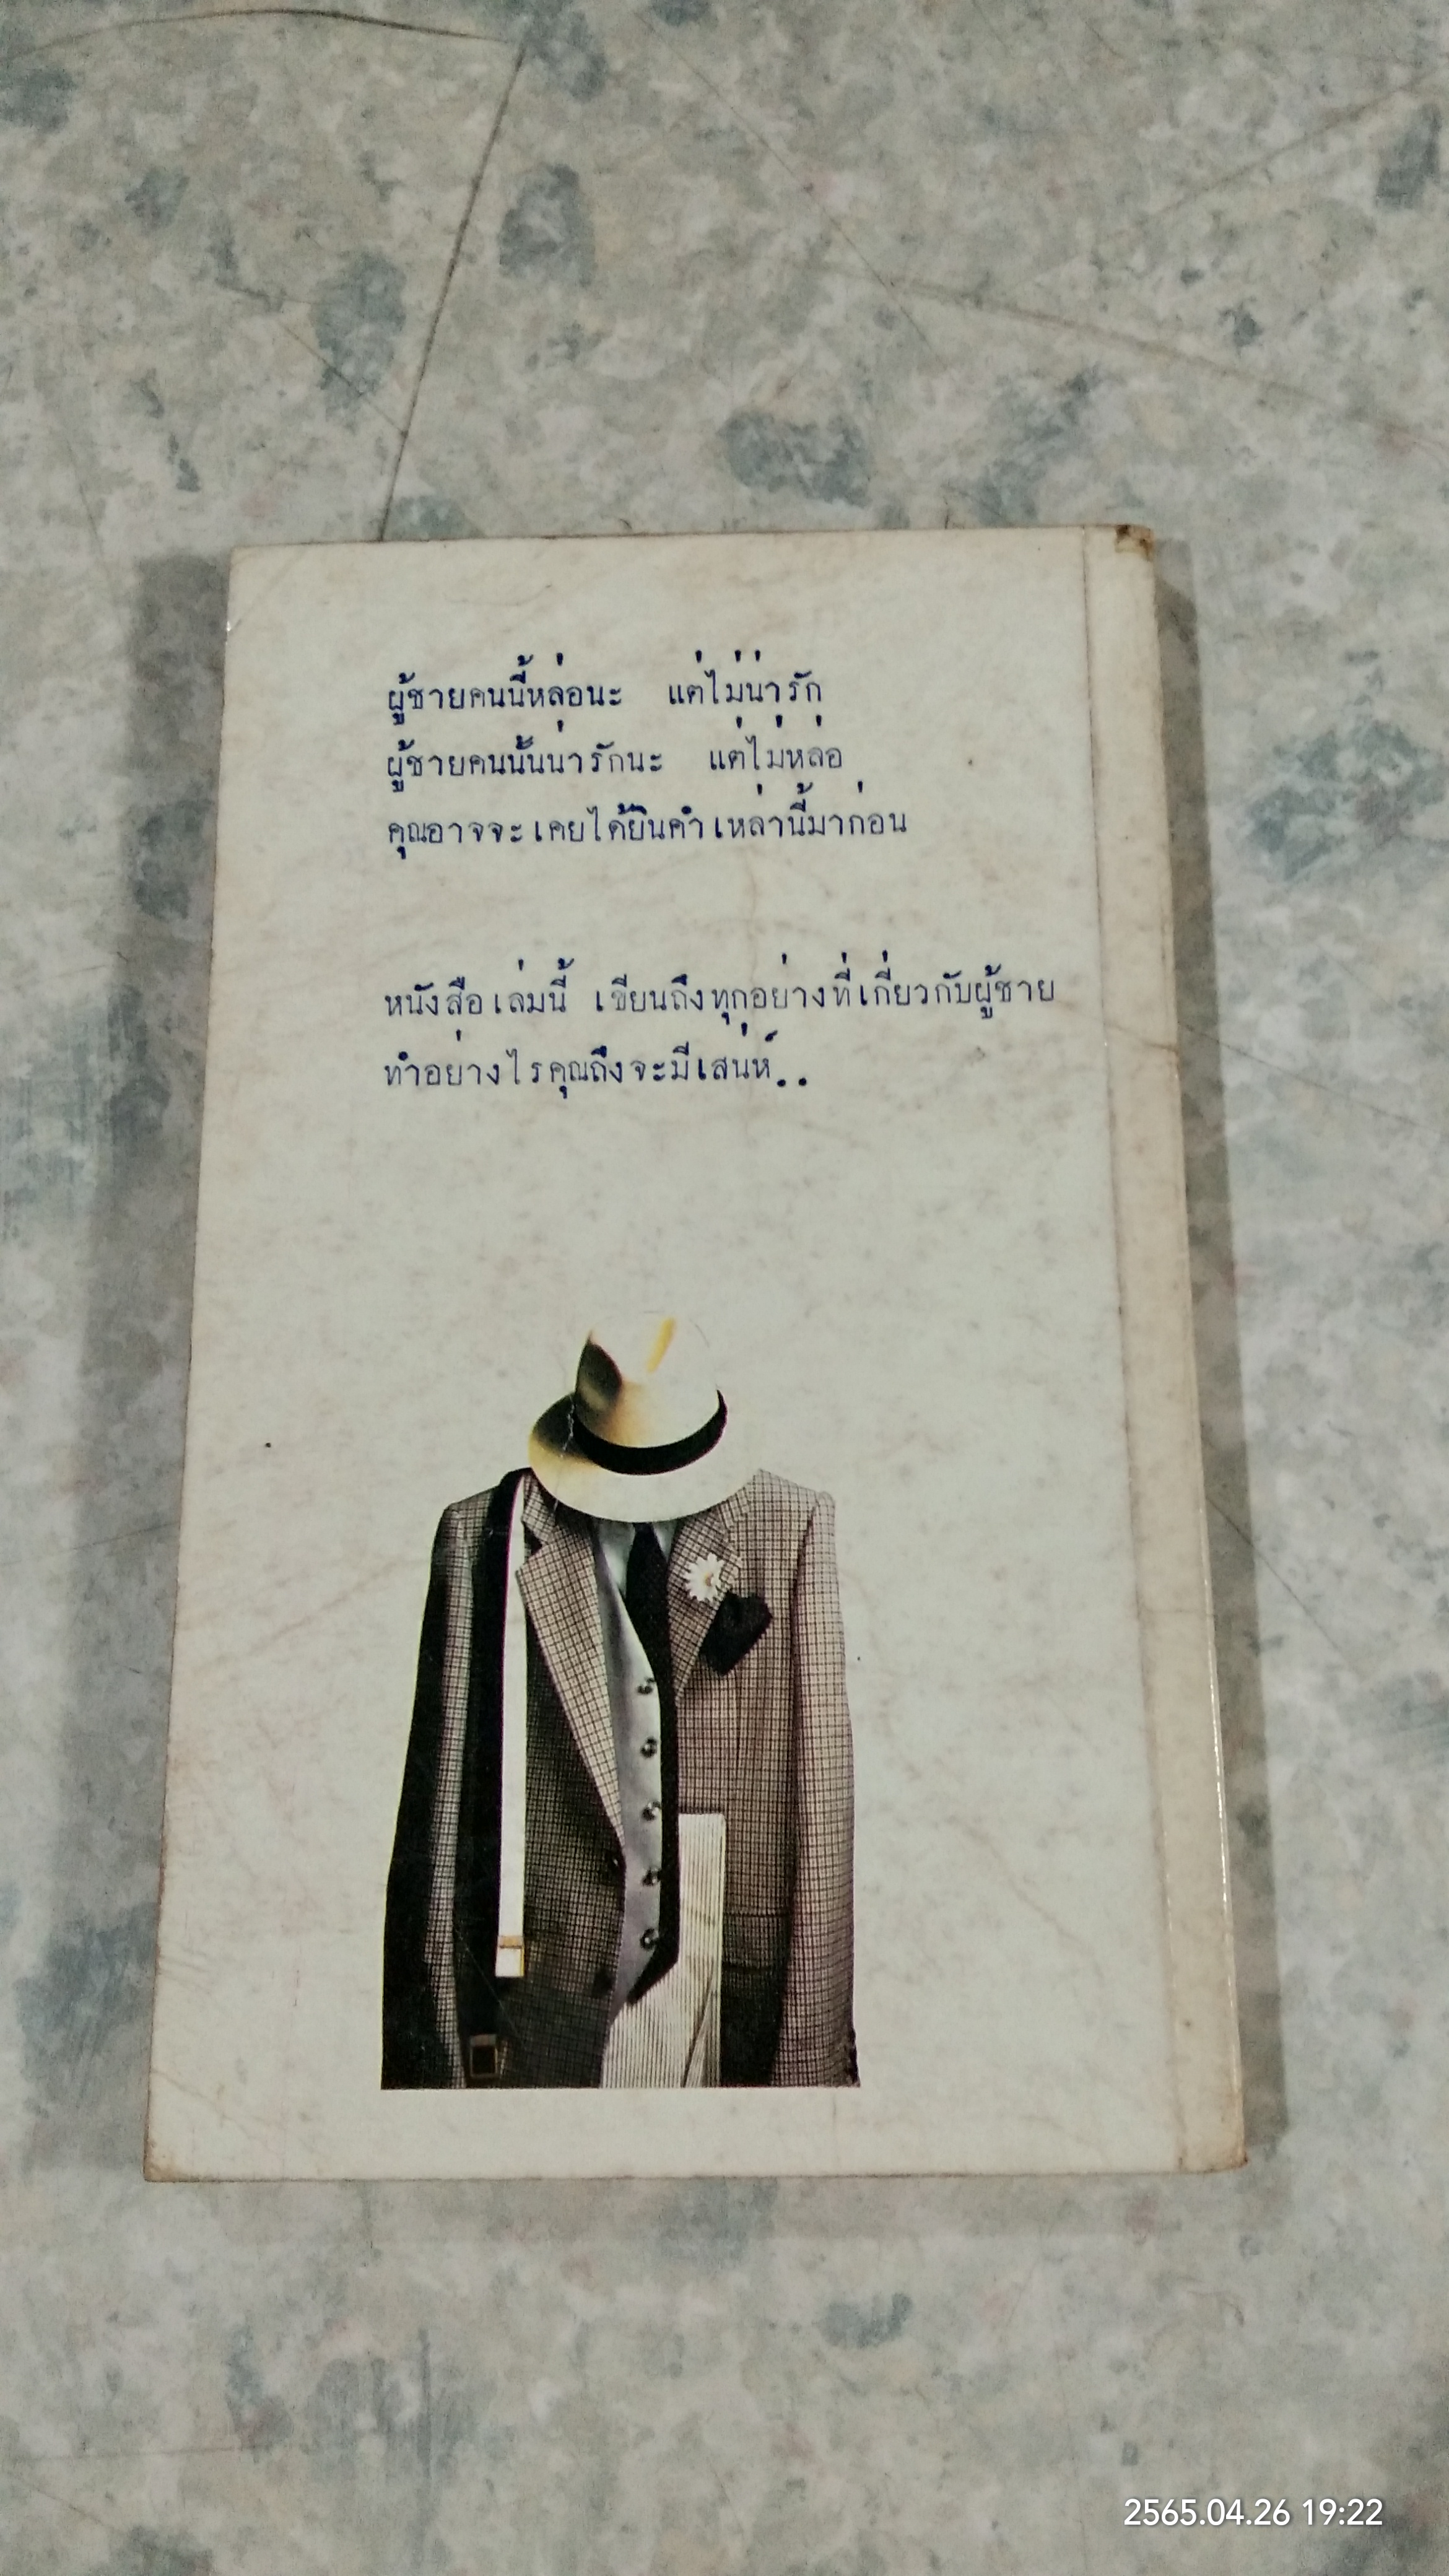 ผู้ชายคนนี้หล่อนะ แต่ไม่น่ารัก
ผู้ชายคนนั้นน่ารักนะ แต่ไม่หล่อ
คุณอาจจะเคยได้ยินคำเหล่านี้มาก่อน
หนังสือเล่มนี้ เขียนถึงทุกอย่างที่เกี่ยวกับผู้ชาย
ทำอย่างไรคุณถึงจะมีเสน่ห์..
2565.04.26 19:22